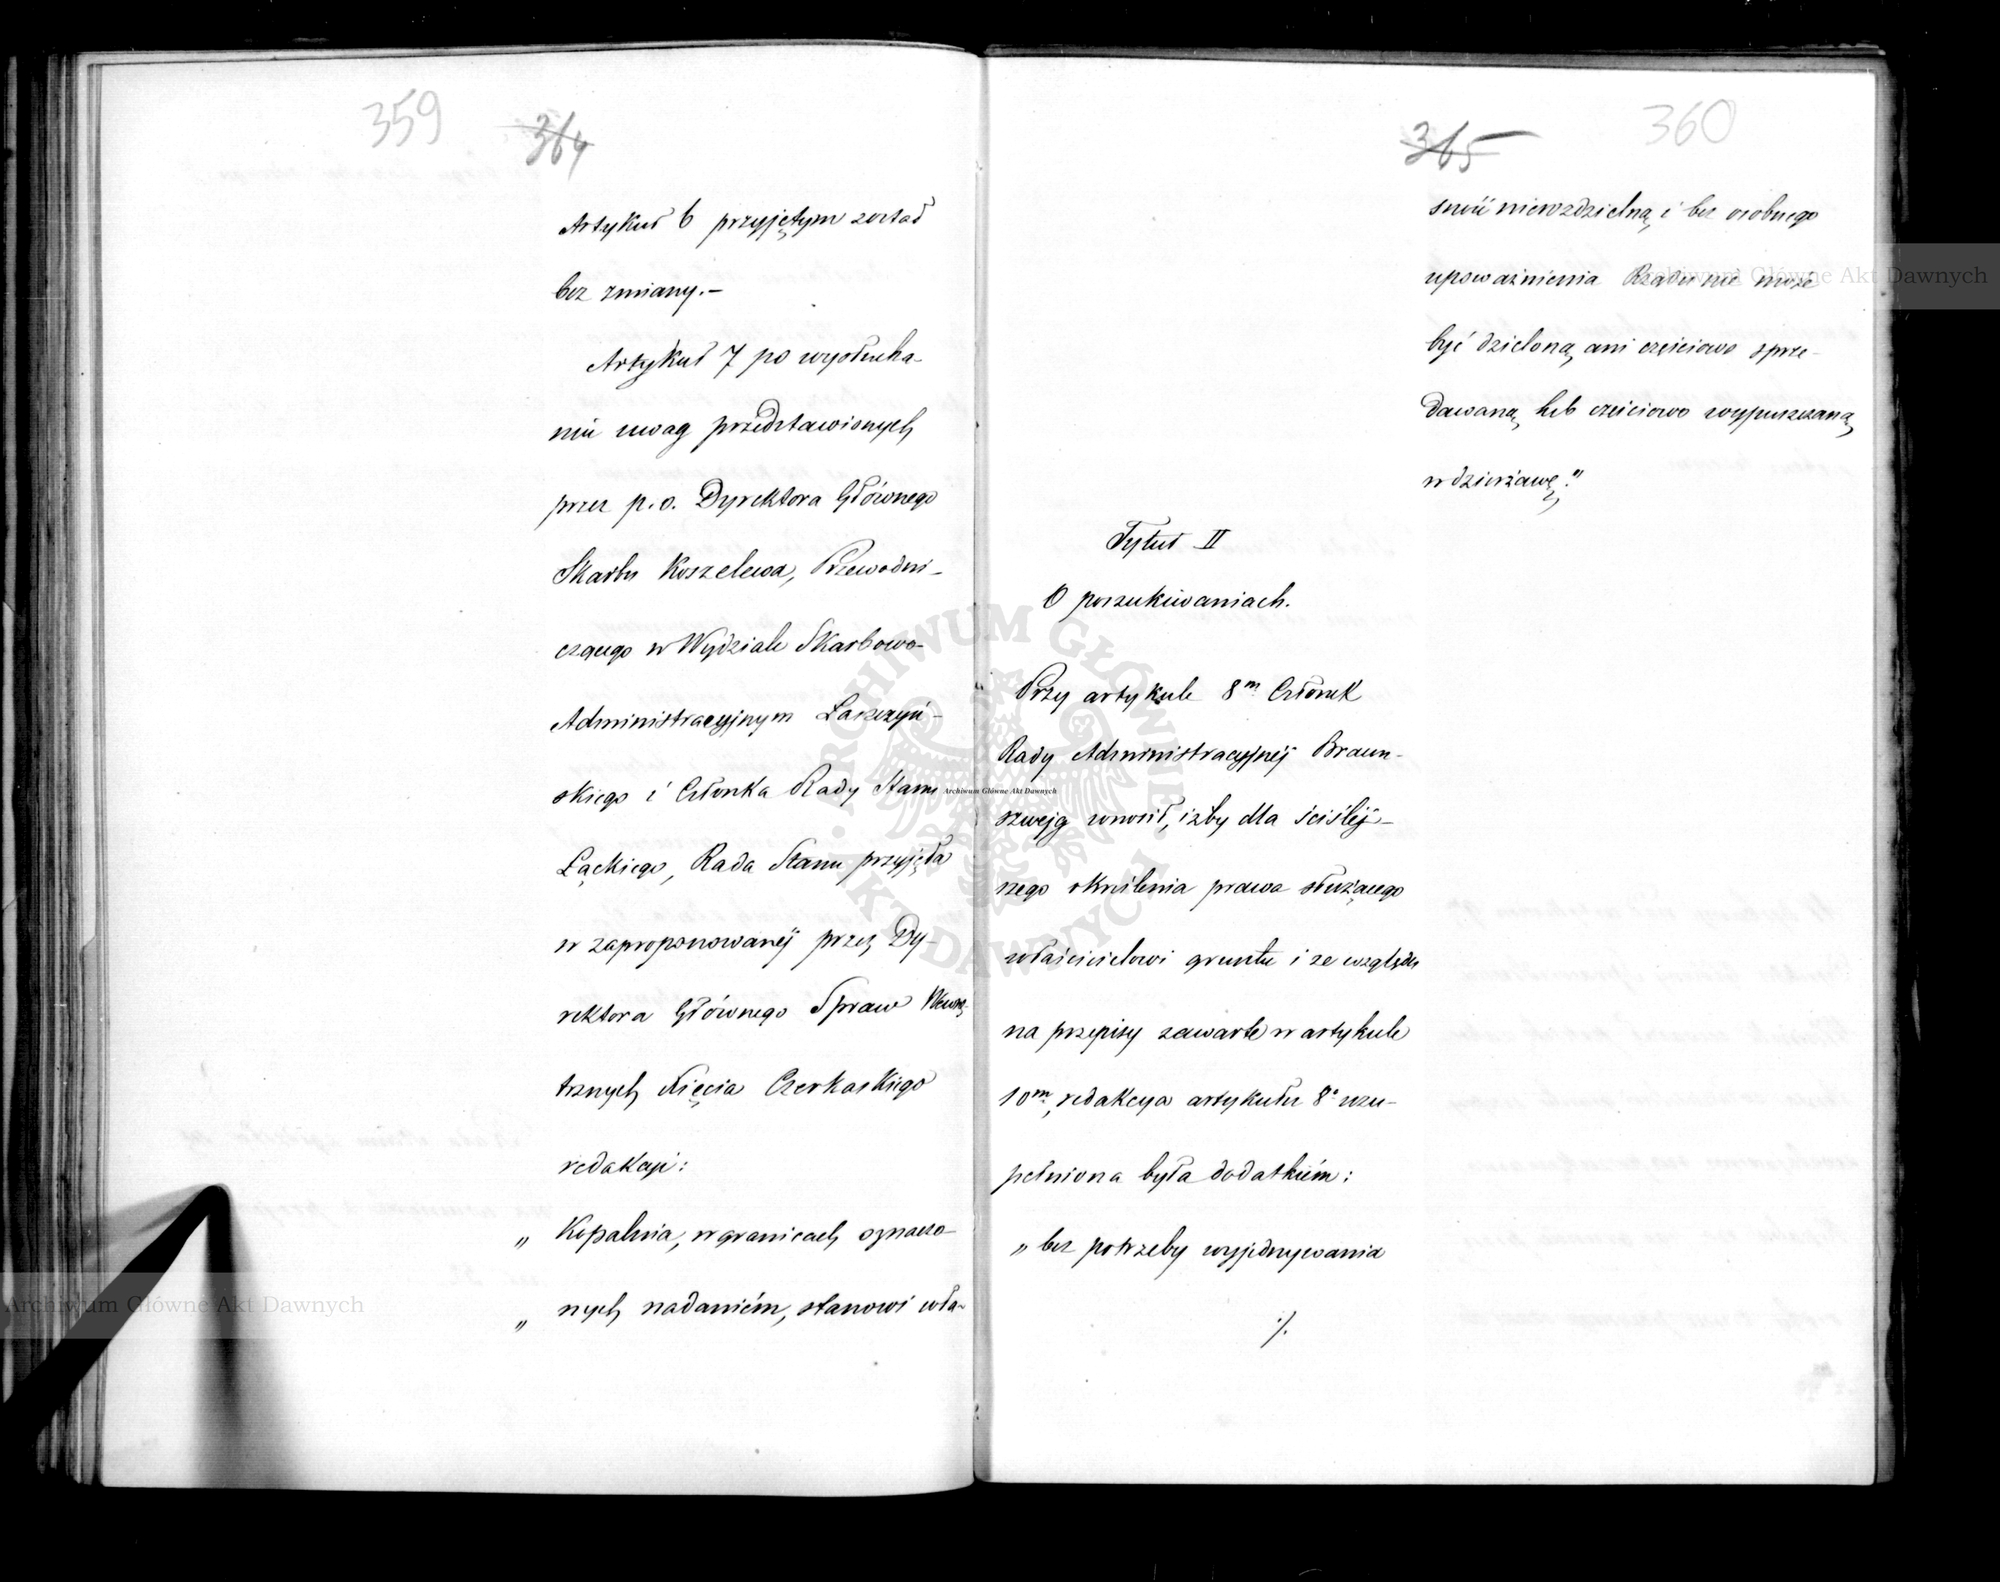 359
364
Artykuł 6 przyjętym został
bez zmiany.–
Artykuł 7 po wysłucha-
niu uwag przedstawionych
przez p.o. Dyrektora Głównego
Skarbu Koszelewa, Przewodni-
czącego w Wydziale Skarbowo-
Administracyjnym Łaszczyń-
skiego i Członka Rady Stanu
Łąckiego, Rada Stanu przyjęła
w zaproponowanéj przez Dy-
rektora Głównego Spraw Wewnę-
trznych Xięcia Czerkaskiego
redakcyi:
„ Kopalnia, w granicach oznaczo-
„ nych nadaniém, stanowi wła-
365
360
sność nierozdzielną i bez osobnego
upoważnienia Rządu nie może
być dzieloną, ani częściowo sprze-
dawaną, lub częściowo wypuszczaną
w dzierżawę."
Tytuł II
O poszukiwaniach.
Przy artykule 8m Członek
Rady Administracyjnéj Braun-
szwejg wnosił, iżby dla ściśléj-
szego określenia prawa służącego
właścicielowi gruntu i ze względu
na przepisy zawarte w artykule
10m, redakcya artykułu 8o uzu-
pełniona była dodatkiém:
„ bez potrzeby wyjednywania
./.
Archiwum Główne Akt Dawnych
Archiwum Główne Akt Dawnych
Archiwum Główne Akt Dawnych
ARCHIWUM GŁÓWNE AKT DAWNYCH